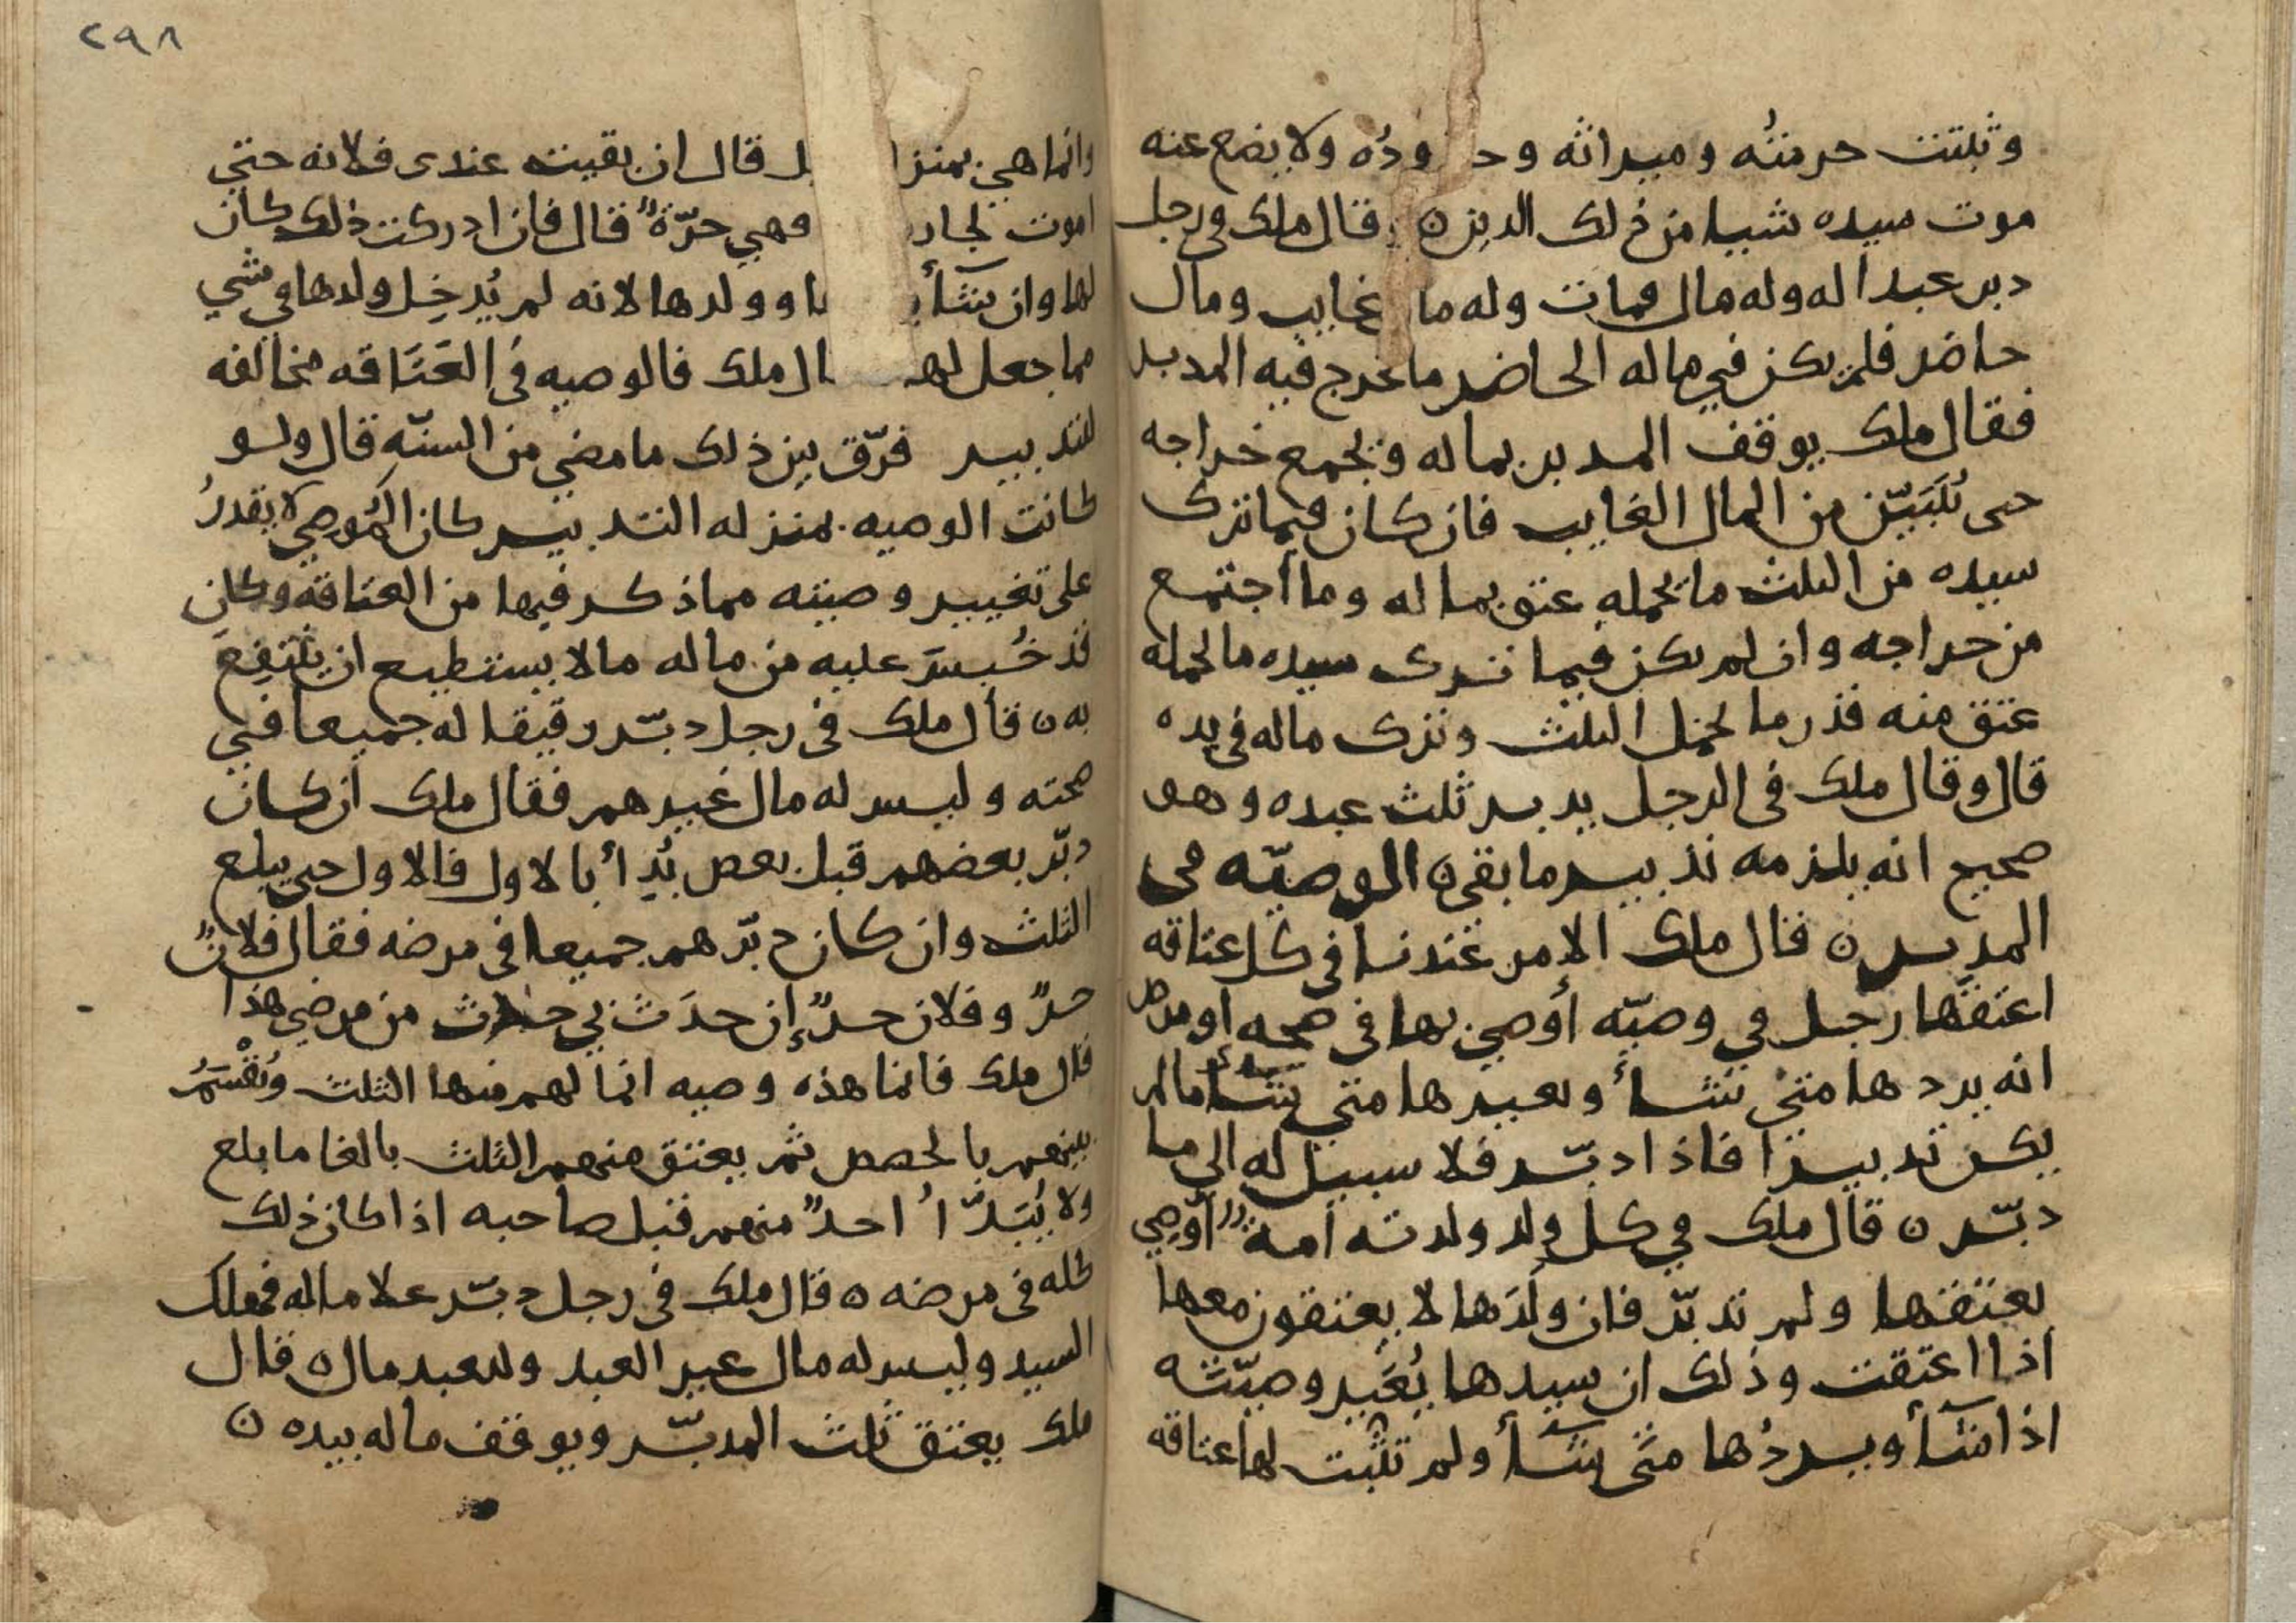 وثبتت حرمتُه وميراثه وح ودُه ولا يضع عنه
موت سيده شيا من ذلك الدين ن قال ملك في رجل
دبر عبدا له وله مال فمات وله ما غايب ومال
حاضر فلم يكن في ماله الحاضر ما يخرج فيه المدبر
فقال ملك يوقف المدبر بماله ويجمع خراجه
حتى يُتَبَيّن من المال الغايب فان كان فيما ترك
سيده من الثلث ما يحمله عتق بماله وما أجتمع
من خراجه وان لم يكن فيما ترك سيده ما يحمله
عتق منه قدر ما يحمل الثلث وترك ماله في يده
قال وقال ملك في الرجل يدبر ثلث عبده وهو
صحيح انه يلزمه تدبير ما بقى ن الوصيّه في
المدبر ن قال ملك الامر عندنا في كل عتاقه
اعتقها رجل في وصيّه أوصى بها في صحه او مرض
انه يردها متى شأ ويغيرها متى شأ ما لم
يكن تدبيرًا فاذا دبّر فلا سبيل له الى ما
دبّر ن قال ملك في كل ولد ولدته أمةٌ أوصي
بعتقها ولم تدبّر فان ولَدَها لا يعتقون معها
اذا اعتقت وذلك ان سيدها يُغَير وصيّته
اذا شآأ ويردُها متى شآأ ولم تثبت لها عتاقه
٢٩٨
وانما هي بمنز ل قال ان بقيت عندى فلانه حتى
اموت لجار فهي حرّةٌ قال فان ادركت ذلك كان
لها وان شآأ ا وولدها لانه لم يُدخِل ولدها في شي
مما جعل له ال ملك فالوصيه في العَتَاقه مخالفه
للتدبير فرّق بين ذلك ما مضى من السنّهِ قال ولو
كانت الوصيه بمنزله التدبير كان المُوصى لا يقدرُ
على تغيير وصيته مما ذكر فيها من العتاقه وكان
قد حُبسَ عليه من ماله ما لا يستطيع ان ينتفِعَ
به ن قال ملك في رجل دبّر رقيقا له جميعا في
صحته وليس له مال غيرهم فقال ملك ان كان
دبّر بعضهم قبل بعض بُدِأ بالاول فالاول حتى يبلع
الثلث وان كان دبّرهم جميعا في مرضه فقال فلانٌ
حرٌ وفلان حرٌ إن حدَث بي حدث من مرضي هذا
قال ملك فانما هذه وصيه انما لهم فيها الثلث وتُقْسَمُ
بينهم بالحصص ثم يعتق منهم الثلث بالغا ما بلع
ولا يُبَدّأ احدٌ منهم قبل صاحبه اذا كان ذلك
كله في مرضه ن قال ملك في رجل دبّر غلاماله فهلك
السيد وليس له مال غير العبد وللعبد مال ن قال
ملك يعتق ثلث المدبّر ويوقف ماله بيده ن